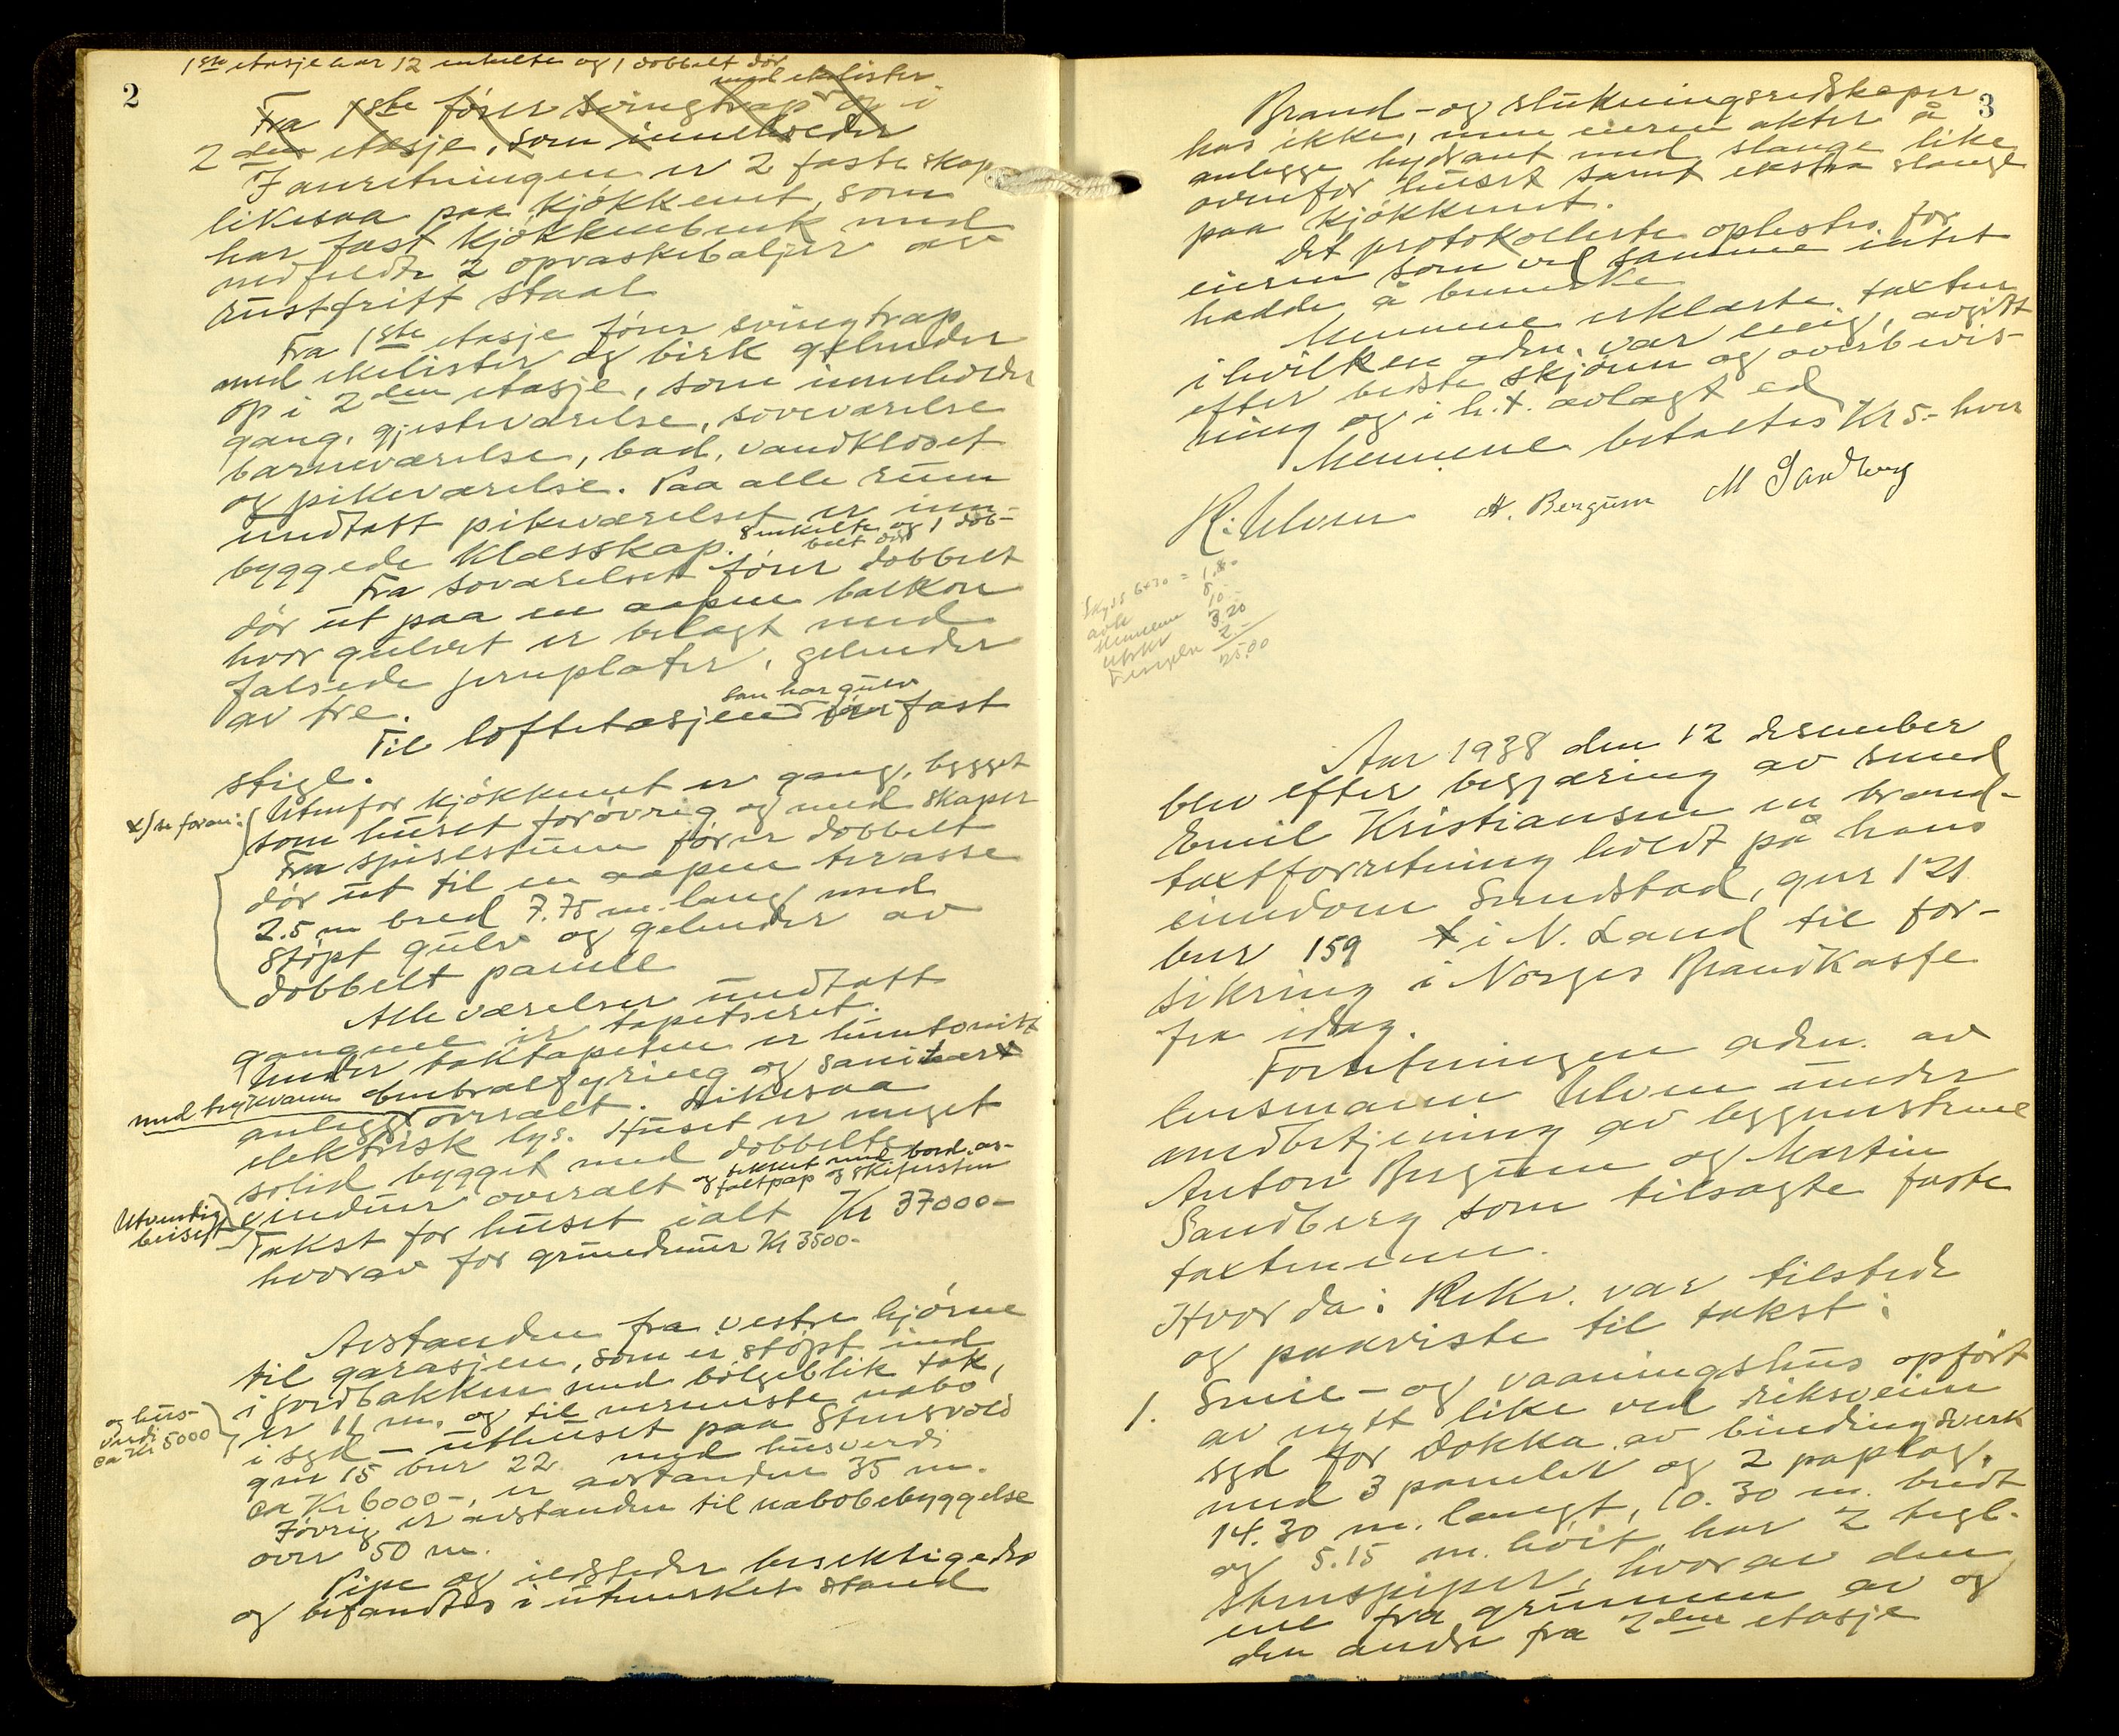 2
1ste etasje har 12 enkelte og 1 dobbelt dør
med ekelister
Fra 1ste fører svingtrap og i
2den etasje, som inneholder
I anretningen er 2 faste skap
likesaa paa kjøkkenet, som
har fast kjøkkenbenk med
nedfeldte 2 opvaskebaljer av
rustfritt staal
Fra 1ste etasje fører svingtrap
med ekelister og birk gelender
op i 2den etasje, som inneholder
gang, gjesteværelse, soveværelse
barneværelse, bad, vandkloset
og pikeværelse. Paa alle rum
undtatt pikeværelset er inn-
byggede klæsskap. 8 enkelte og 1 dob-
belt dør
Fra sovværelset fører dobbelt
dør ut paa en aapen balkon
hvor gulvet er belagt med
falsede jernplater, gelender
av tre.
som har gulv
Til loftetasjen fører fast
stige.
x/ se foran:
Utenfor kjøkkenet er gang, bygget
som huset forøvrig og med skaper
Fra spisestuen fører dobbelt
dør ut til en aapen terasse
2.5 m bred 7.75 m. lang med
støpt gulv og gelender av
dobbelt panell
Alle værelser undtatt
gangene er tapetseret.
Under taktapeten er huntonitt
med trykvann Centralfyring og sanitært
anlegg overalt. Likesaa
elektrisk lys. Huset er meget
solid bygget med dobbelte
vinduer overalt og tekket med bord, as-
faltpap og skifersten
Utvendig
beiset
Takst for huset ialt Kr 37000-
hvorav for grundmur Kr 3500-
Avstanden fra vestre hjørne
til garasjen, som er støpt ind
i jordbakken med bølgeblik tak,
er 11 m. og til nermeste nabo
og hus-
verdi
ca Kr 5000
i syd - uthuset paa Stensvold
gnr 15 bnr 22 med husverdi
ca Kr 6000-, er avstanden 35 m.
Iøvrig er avstanden til nabobebyggelse
over 50 m.
Pipe og ildsteder besektigedes
og befandtes i utmerket stand
3
Brand- og slukningsredskaper
has ikke, men eieren akter å
anlegge hydrant med slange like
ovenfor huset samt ekstra slange
paa kjøkkenet.
Det protokollerte oplestes for
eieren som ved samme intet
hadde å bemerke
Mennene erklærte taxten
i hvilken adm. var enig, avgitt
efter bedste skjønn og overbevis-
ning og i h. t. avlagt ed
Mennene betaltes Kr 5.- hver
K. Ulven A. Bergum M Sandberg
Skyss 6x30 = 1.80
8.-
Mennene 10.-
3.20
2.-
25.00
Aar 1938 den 12 desember
blev efter begjæring av smed
Emil Kristiansen en brand-
taxtforretning holdt på hans
eiendom Sundstad, gnr 121
bnr 159 i N. Land til for-
sikring i Norges Brandkasse
fra idag.
Forretningen adm. av
lensmann Ulven under
medbetjening av byggmestrene
Anton Bergum og Martin
Sandberg som tilsagte faste
taxtmenn.
Hvor da: Rekv. var tilstede
og paaviste til takst:
1. Smie- og vaaningshus opført
av nytt like ved riksveien
syd for Dokka av bindingsverk
med 3 paneler og 2 paplag,
14.30 m. langt, 10.30 m. bredt
og 5.15 m. høit, har 2 tegl-
stenspiper, hvorav den
ene fra grunnen av og
den andre fra 2den etasje